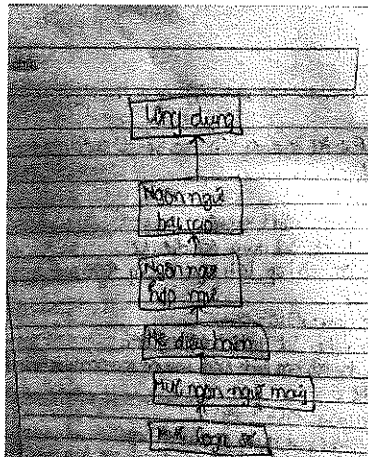 Ứng dụng
Ngôn ngữ
bậc cao
Ngôn ngữ
hợp ngữ
Hệ điều hành
Mức ngôn ngữ máy
logic số